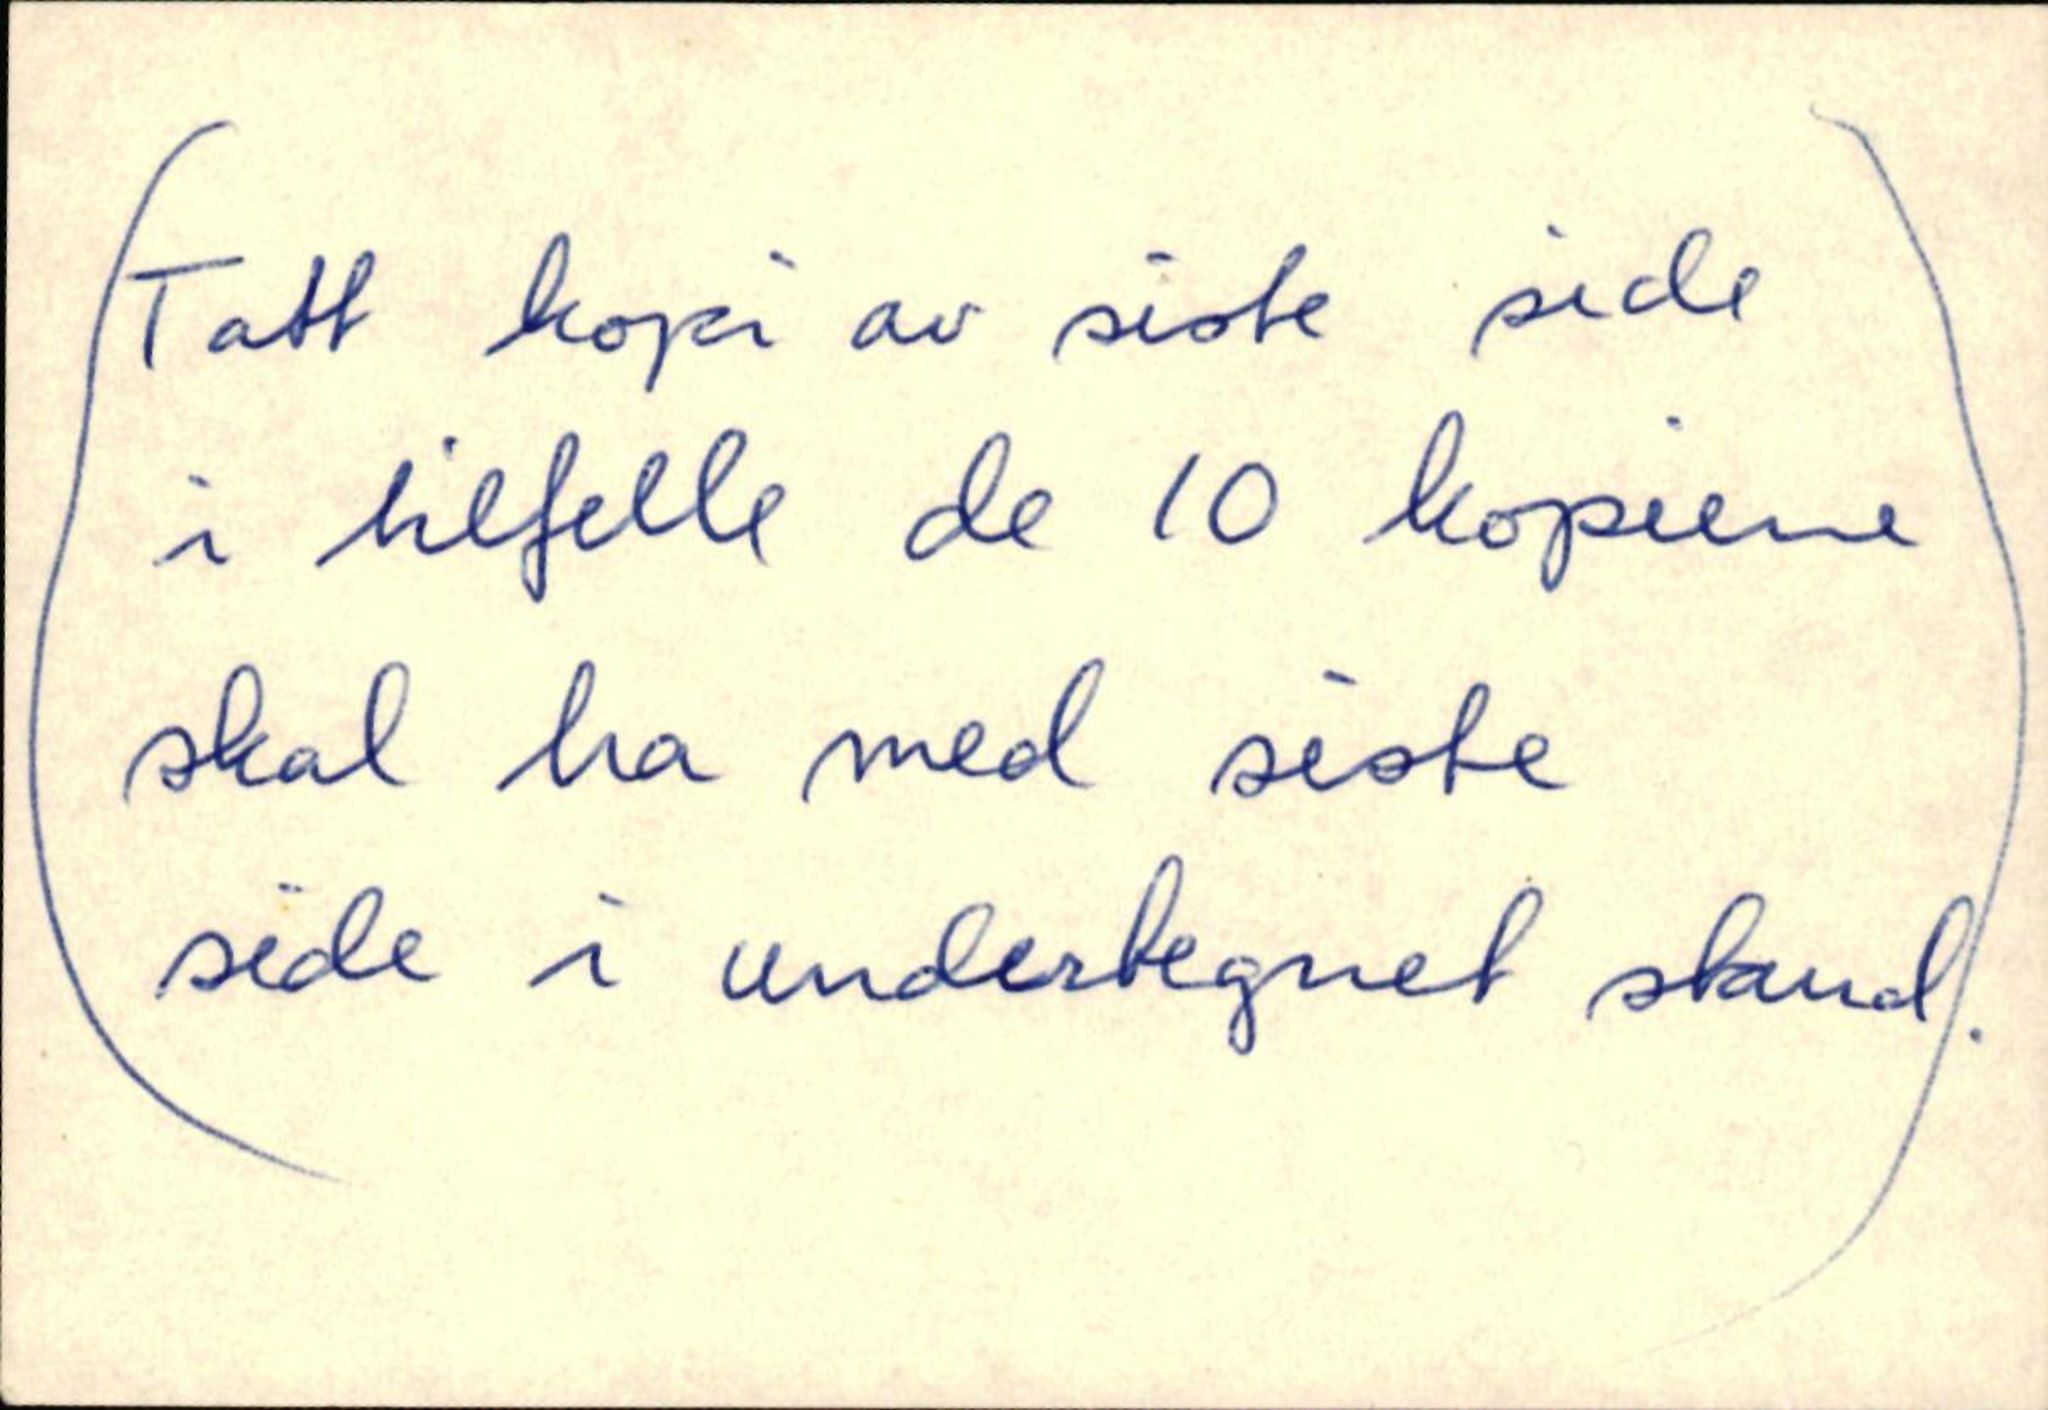 (Tatt kopi av siste side
i tilfelle de 10 kopiene
skal ha med siste
side i undertegnet stand.)